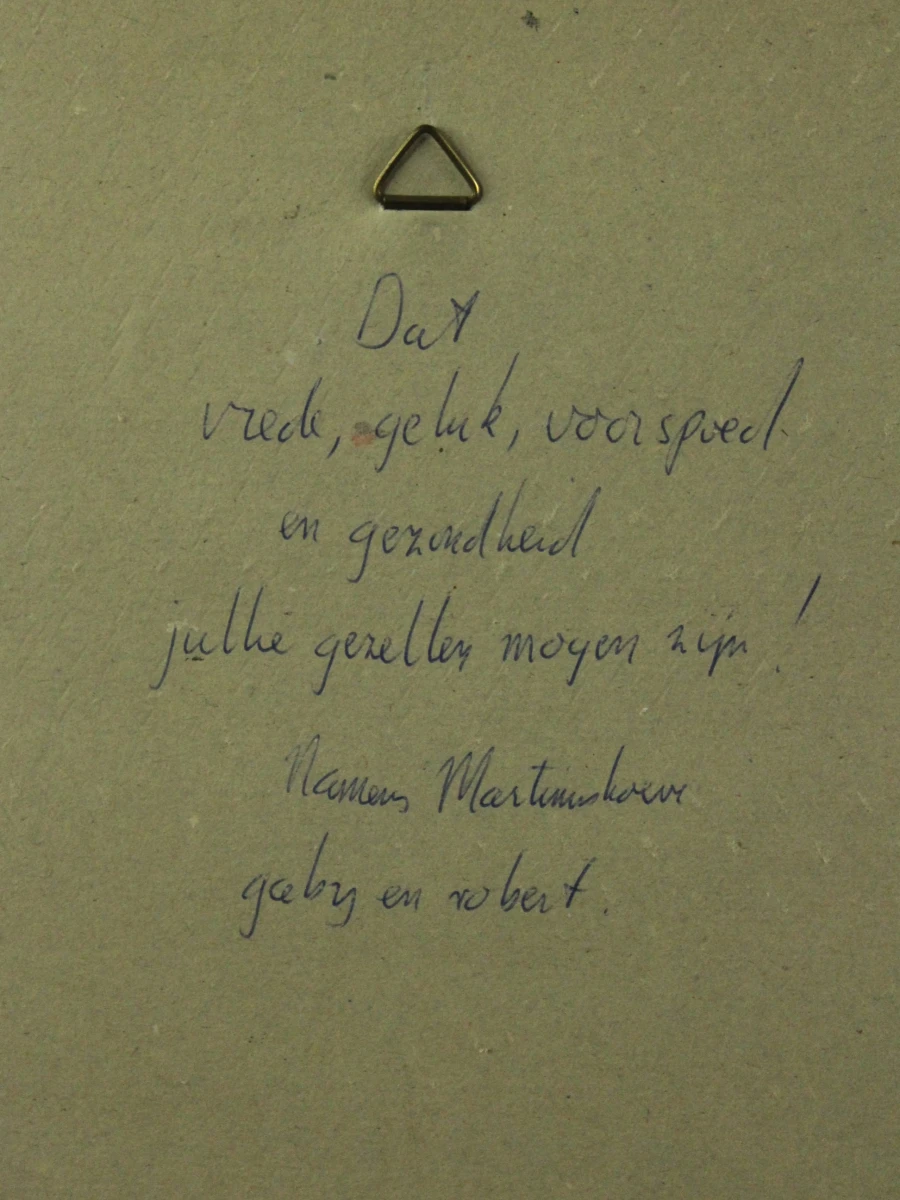 Dat
vrede, geluk, voorspoed
en gezondheid
jullie gezellen mogen zijn!
Namens Martinushoeve
gaby en robert.